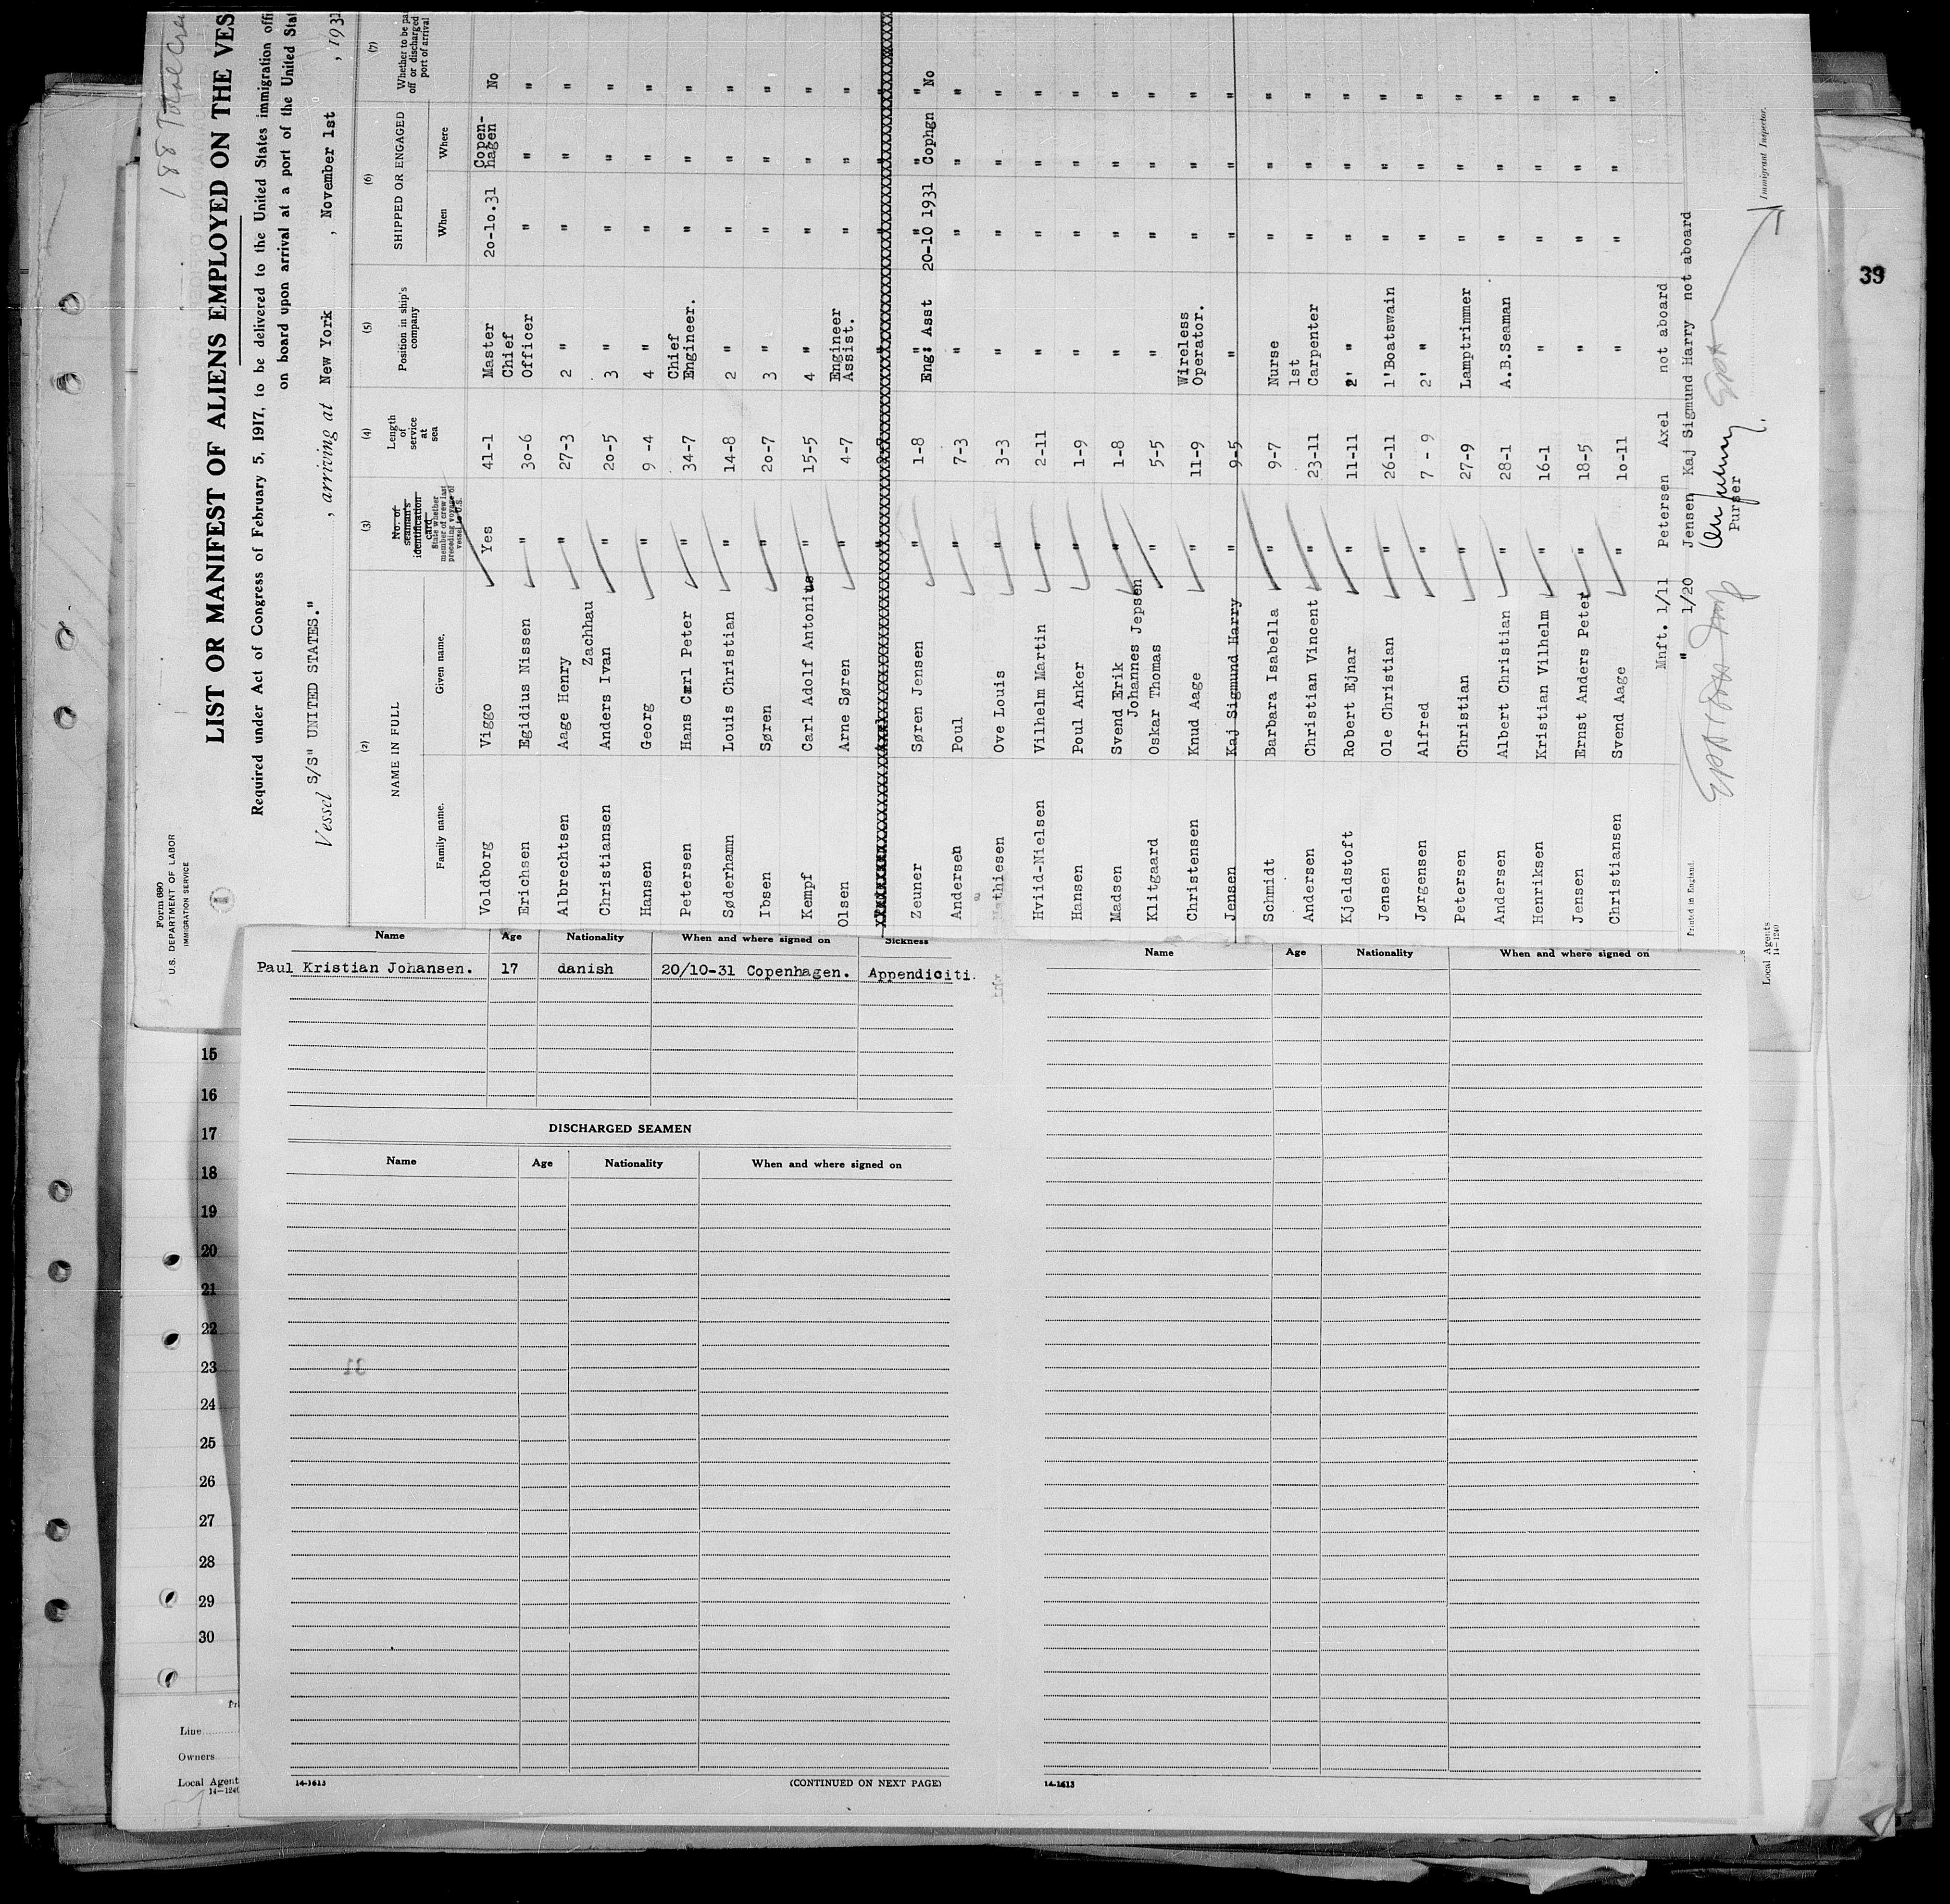 188 Total Crew
Form 680
U.S. DEPARTMENT OF LABOR
IMMIGRATION SERVICE
1
LIST OR MANIFEST OF ALIENS EMPLOYED ON THE VES
Required under Act of Congress of February 5, 1917, to be delivered to the United States immigration offi
on board upon arrival at a port of the United Stat
Vessel S/S" UNITED STATES." , arriving at New York , November 1st , 1931
(2) (3) (4) (5) (6) (7)
NAME IN FULL
Family name. Given name.
No. of seaman's identification card
State whether member of crew last preceding voyage of vessel to U.S.
Length of service at sea
Position in ship's company
SHIPPED OR ENGAGED
When Where
Whether to be pai off or discharged port of arrival
Voldborg Viggo Yes 41-1 Master 20-10.31 Copen-hagen No
Erichsen Egidius Nissen " 30-6 Chief Officer " " "
Albrechtsen Aage Henry " 27-3 2 " " " "
Christiansen Anders Ivan Zachhau " 20-5 3 " " " "
Hansen Georg " 9 -4 4 " " " "
Petersen Hans Carl Peter " 34-7 Chief Engineer. " " "
Søderhamn Louis Christian " 14-8 2 " " " "
Ibsen Søren " 20-7 3 " " " "
Kempf Carl Adolf Antonius " 15-5 4 " " " "
Olsen Arne Søren " 4-7 Engineer Assist. " " "
Zeuner Søren Jensen " 1-8 Eng: Asst 20-10 1931 Cophgn No
Andersen Poul " 7-3 " " " "
Mathiesen Ove Louis " 3-3 " " " "
Hviid-Nielsen Vilhelm Martin " 2-11 " " " "
Hansen Poul Anker " 1-9 " " " "
Madsen Svend Erik Johannes Jepsen " 1-8 " " " "
Klitgaard Oskar Thomas " 5-5 " " " "
Christensen Knud Aage " 11-9 Wireless Operator. " " "
Jensen Kaj Sigmund Harry " 9-5 " " " "
Schmidt Barbara Isabella " 9-7 Nurse " " "
Andersen Christian Vincent " 23-11 1st Carpenter " " "
Kjeldstoft Robert Ejnar " 11-11 2' " " " "
Jensen Ole Christian " 26-11 1'Boatswain " " "
Jørgensen Alfred " 7 - 9 2' " " " "
Petersen Christian " 27-9 Lamptrimmer " " "
Andersen Albert Christian " 28-1 A.B.Seaman " " "
Henriksen Kristian Vilhelm " 16-1 " " " "
Jensen Ernst Anders Peter " 18-5 " " " "
Christiansen Svend Aage " 10-11 " " " "
Mnft. 1/11 Petersen Axel not aboard
" 1/20 Jensen Kaj Sigmund Harry not aboard
Purser
Immigrant Inspector.
Printed in England.
Local Agents
14-1240
39
Name Age Nationality When and where signed on Sickness
Paul Kristian Johansen. 17 danish 20/10-31 Copenhagen. Appendiciti.
DISCHARGED SEAMEN
Name Age Nationality When and where signed on
14-1613 (CONTINUED ON NEXT PAGE)
Name Age Nationality When and where signed on
14-1613
15
16
17
18
19
20
21
22
23
24
25
26
27
28
29
30
31
Line
Owners
Local Agent
14-1240